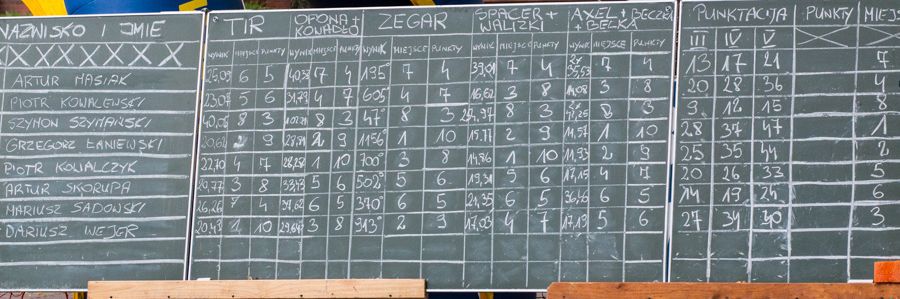 NAZWISKO I IMIE TIR OPONA + KOWADŁO ZEGAR SPACER + WALIZKI AXEL + BECZKA + BELKA PUNKTACJA PUNKTY MIEJS
XXXXXXXXX WYNIK MIEJSCE PUNKTY WYNIK MIEJSCE PUNKTY WYNIK MIEJSCE PUNKTY WYNIK MIEJSCE PUNKTY WYNIK MIEJSCE PUNKTY III IV V
ARTUR MASIAK 25,09 6 5 40,38 7 4 195° 7 4 39,01 7 4 7 4 13 17 21 7
PIOTR KOWALEWSKI 23,07 5 6 31,79 4 7 605 4 7 16,62 3 8 14,08 3 8 20 28 36 4
SZYMON SZYMAŃSKI 8 3 8 3 47° 8 3 8 3 8 3 9 12 15 8
GRZEGORZ ŁANIEWSKI 20,62 2 9 28,84 2 9 1156° 1 10 15,77 2 9 11,57 1 10 28 37 47 1
PIOTR KOWALCZYK 22,70 4 7 28,28 1 10 700° 3 8 14,86 1 10 11,93 2 9 25 35 44 2
ARTUR SKORUPA 20,77 3 8 33,43 5 6 502° 5 6 19,31 5 6 17,15 4 7 20 26 33 5
MARIUSZ SADOWSKI 26,26 7 4 37,62 6 5 370° 6 5 21,35 6 5 36,46 6 5 14 19 24 6
DARIUSZ WEJER 20,43 1 10 29,64 3 8 913° 2 9 17,03 4 7 17,19 5 6 27 34 40 3